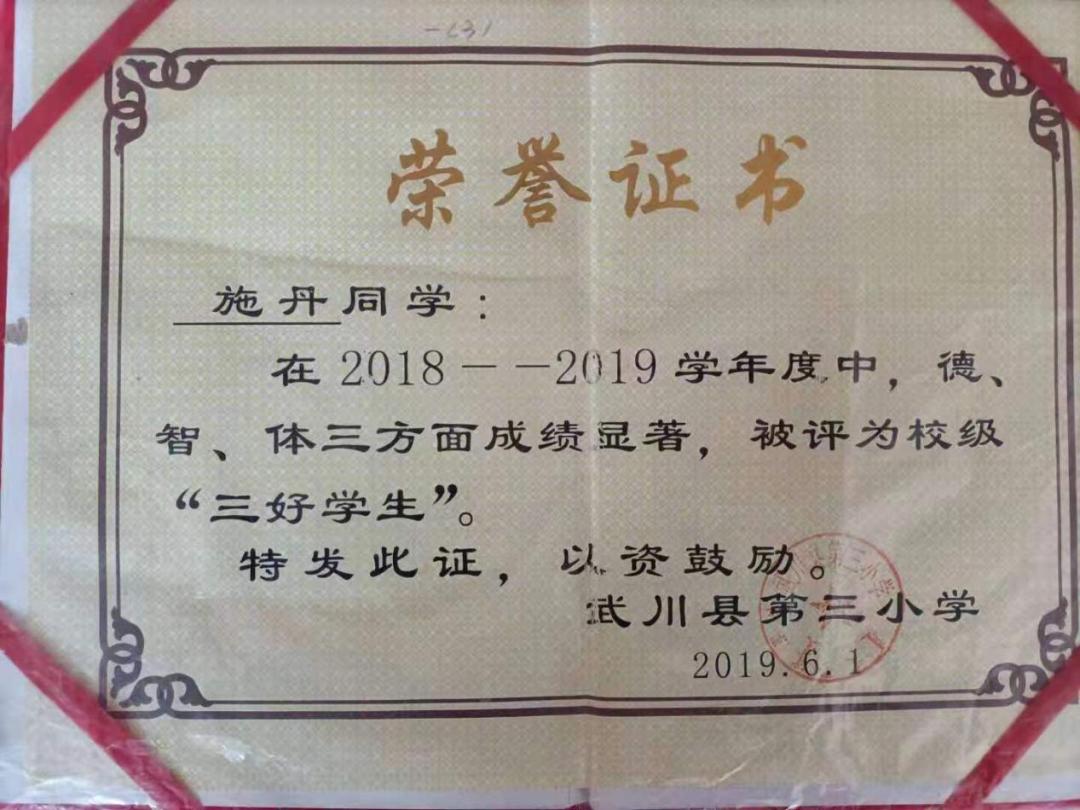 荣誉证书
施丹同学：
在2018－－2019学年度中，德、
智、体三方面成绩显著，被评为校级
“三好学生”。
特发此证，以资鼓励。
武川县第三小学
2019.6.1